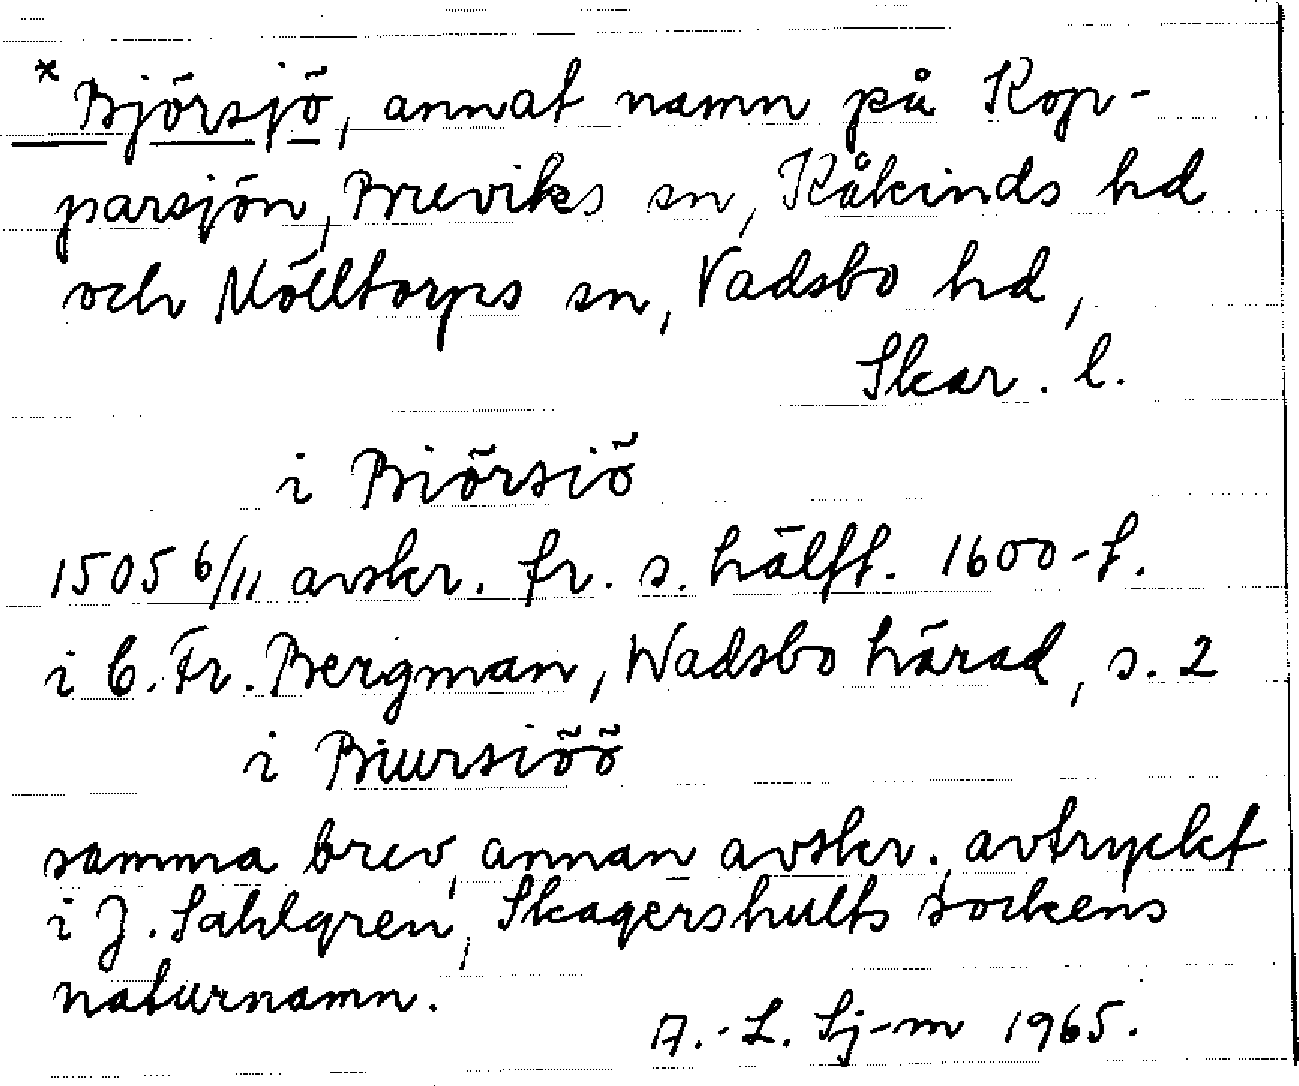 *Björsjö, annat namn på Kop-
parsjön, Breviks sn, Kåkinds hd
och Mölltorps sn, Vadsbo hd,
Skar. l.
i Biörsiö
1505 6/11 avskr. fr. s. hälft. 1600-t.
i C. Fr. Bergman, Wadsbo härad, s. 2
i Biursiöö
samma brev, annan avskr., avtryckt
i J. Sahlgren, Skagershults sockens
naturnamn.
A.-L. Sj-m 1965.